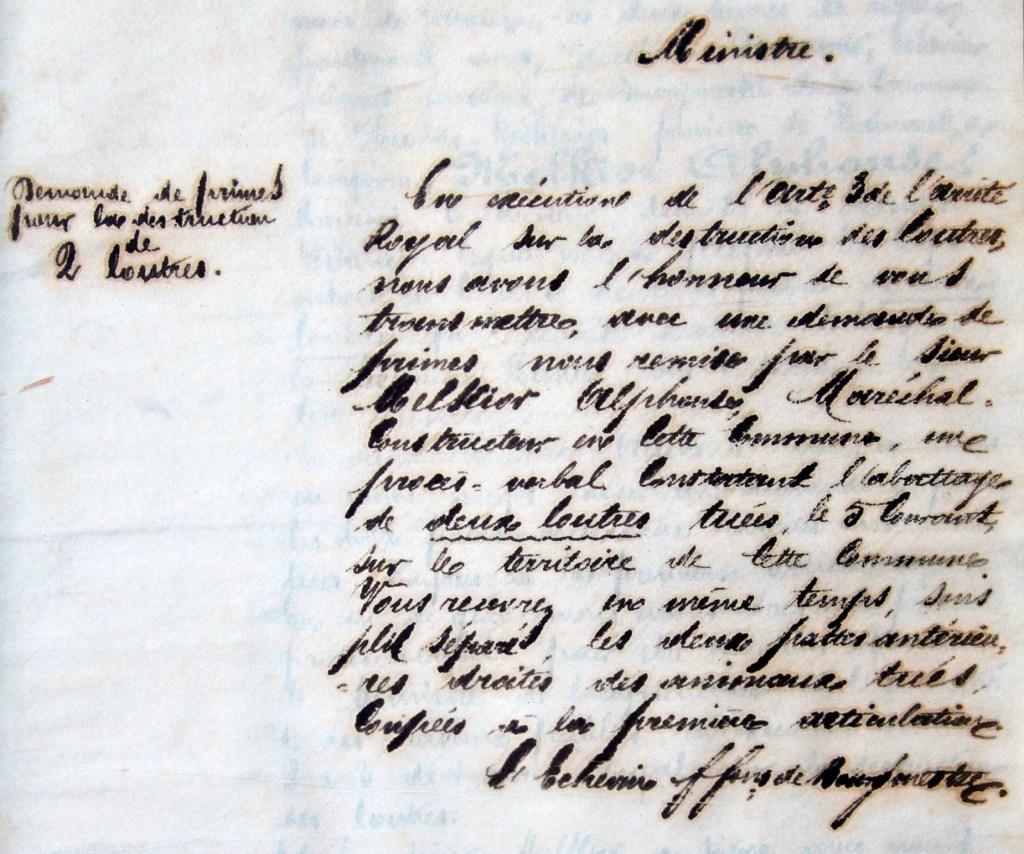 Ministre.
Demande de primes
pour la destruction
de
2 loutres.
En exécution de l'art. 3 de l'arrêté
Royal sur la destruction des loutres,
nous avons l'honneur de vous
transmettre, avec une demande de
primes nous remise par le sieur
Melkior Alphonse, Maréchal-
Constructeur en cette Commune, un
procès-verbal Constatant l'abattage
de deux loutres tuées le 5 Courant,
sur le territoire de cette Commune
Vous recevrez en même temps, sous
pli séparé, les deux pattes antérieu-
-res droites des animaux tués,
Coupées à la première articulation.
L'Echevin ff fons de Bourgmestre.